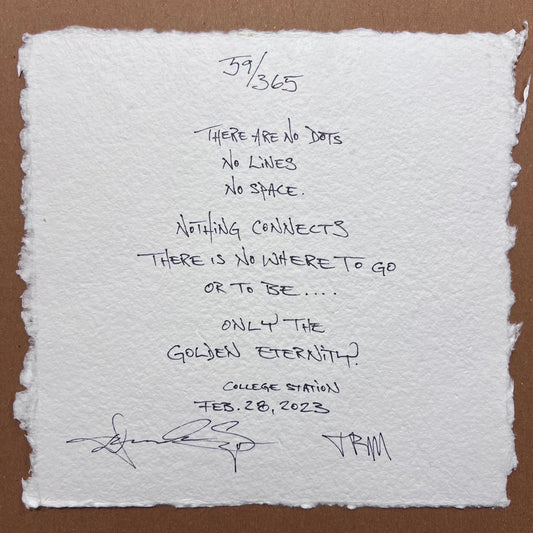 59/365
THERE ARE NO DOTS
NO LINES
NO SPACE.
NOTHING CONNECTS
THERE IS NO WHERE TO GO
OR TO BE....
ONLY THE
GOLDEN ETERNITY.
COLLEGE STATION
FEB. 28, 2023
TRM